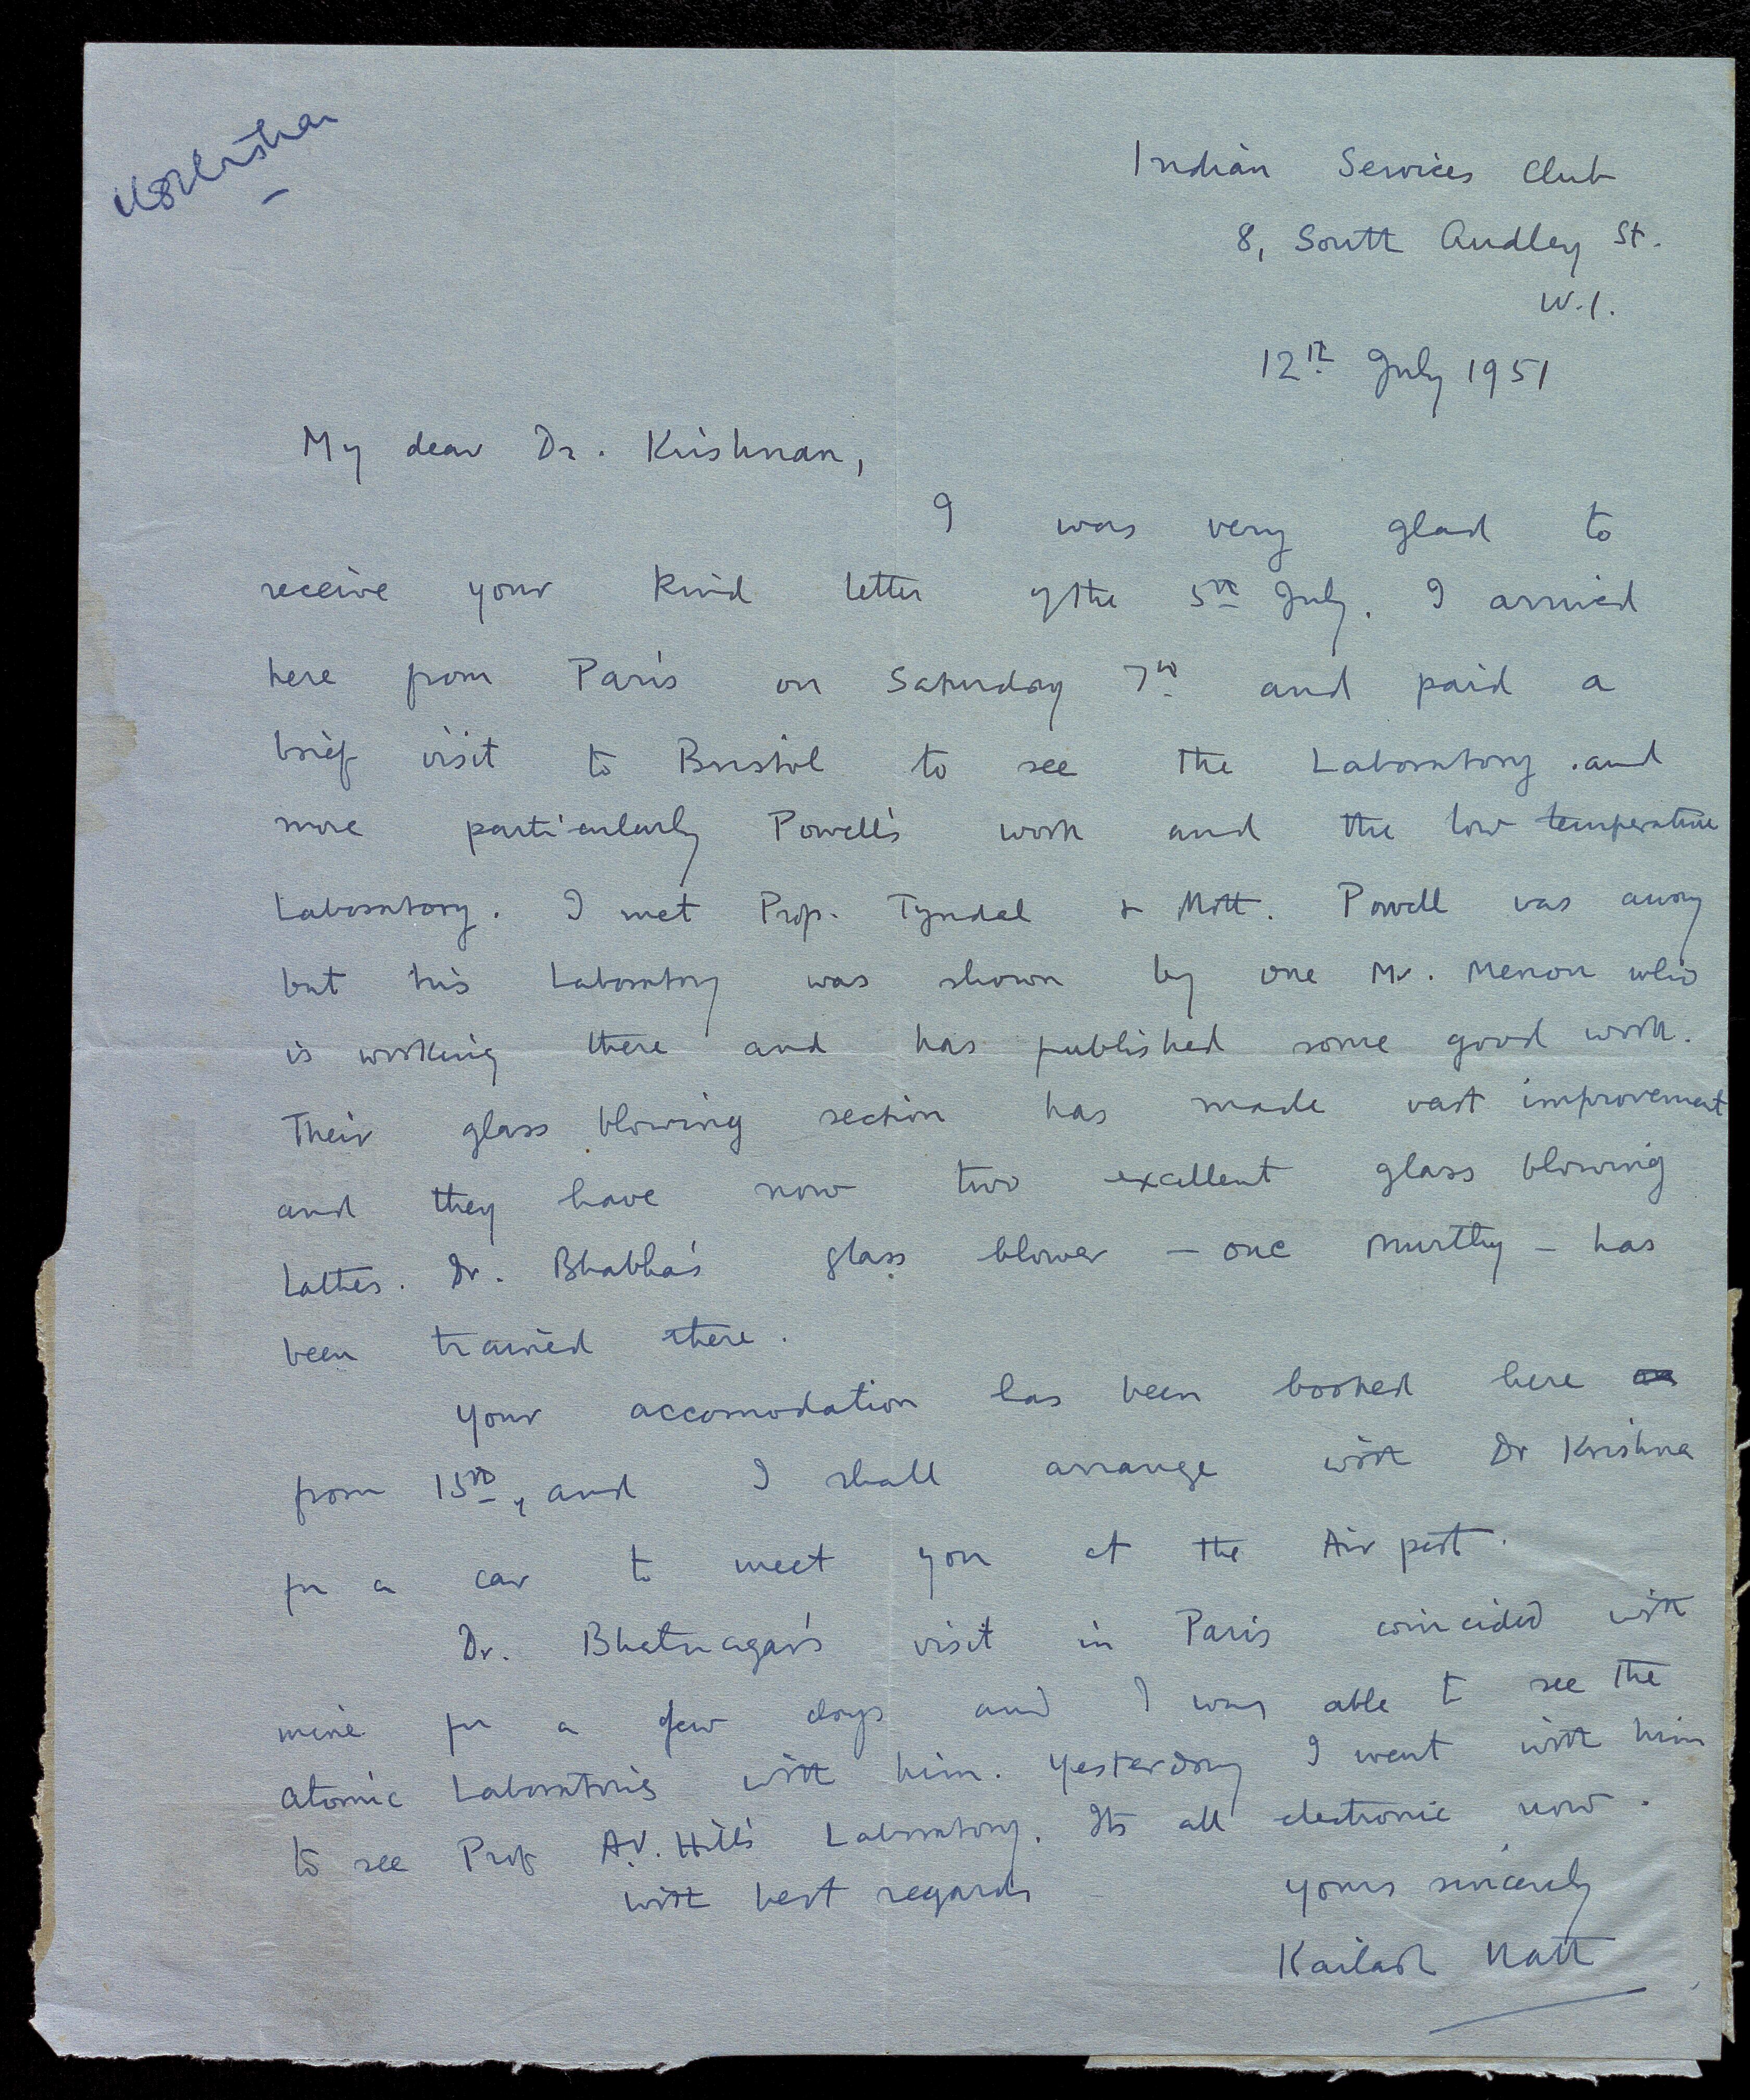 KSKrishnan
Indian Services Club
8, South Audley St.
W.1.
12th July 1951
My dear Dr. Krishnan,
I was very glad to
receive your kind letter of the 5th July. I arrived
here from Paris on Saturday 7th and paid a
brief visit to Bristol to see the Laboratory and
more particularly Powell's work and the low temperature
Laboratory. I met Prof. Tyndal & Mott. Powell was away
but his Laboratory was shown by one Mr. Menon who
is working there and has published some good work.
Their glass blowing section has made vast improvement
and they have now two excellent glass blowing
Lathes. Dr. Bhabha's glass blower – one Murthy – has
been trained there.
Your accomodation has been booked here
from 15th, and I shall arrange with Dr Krishna
for a car to meet you at the Air port.
Dr. Bhatnagar's visit in Paris coincided with
mine for a few days and I was able to see the
atomic Laboratories with him. Yesterday I went with him
to see Prof A.V. Hill's Laboratory. Its all electronic now.
with best regards yours sincerely
Kailash Nath